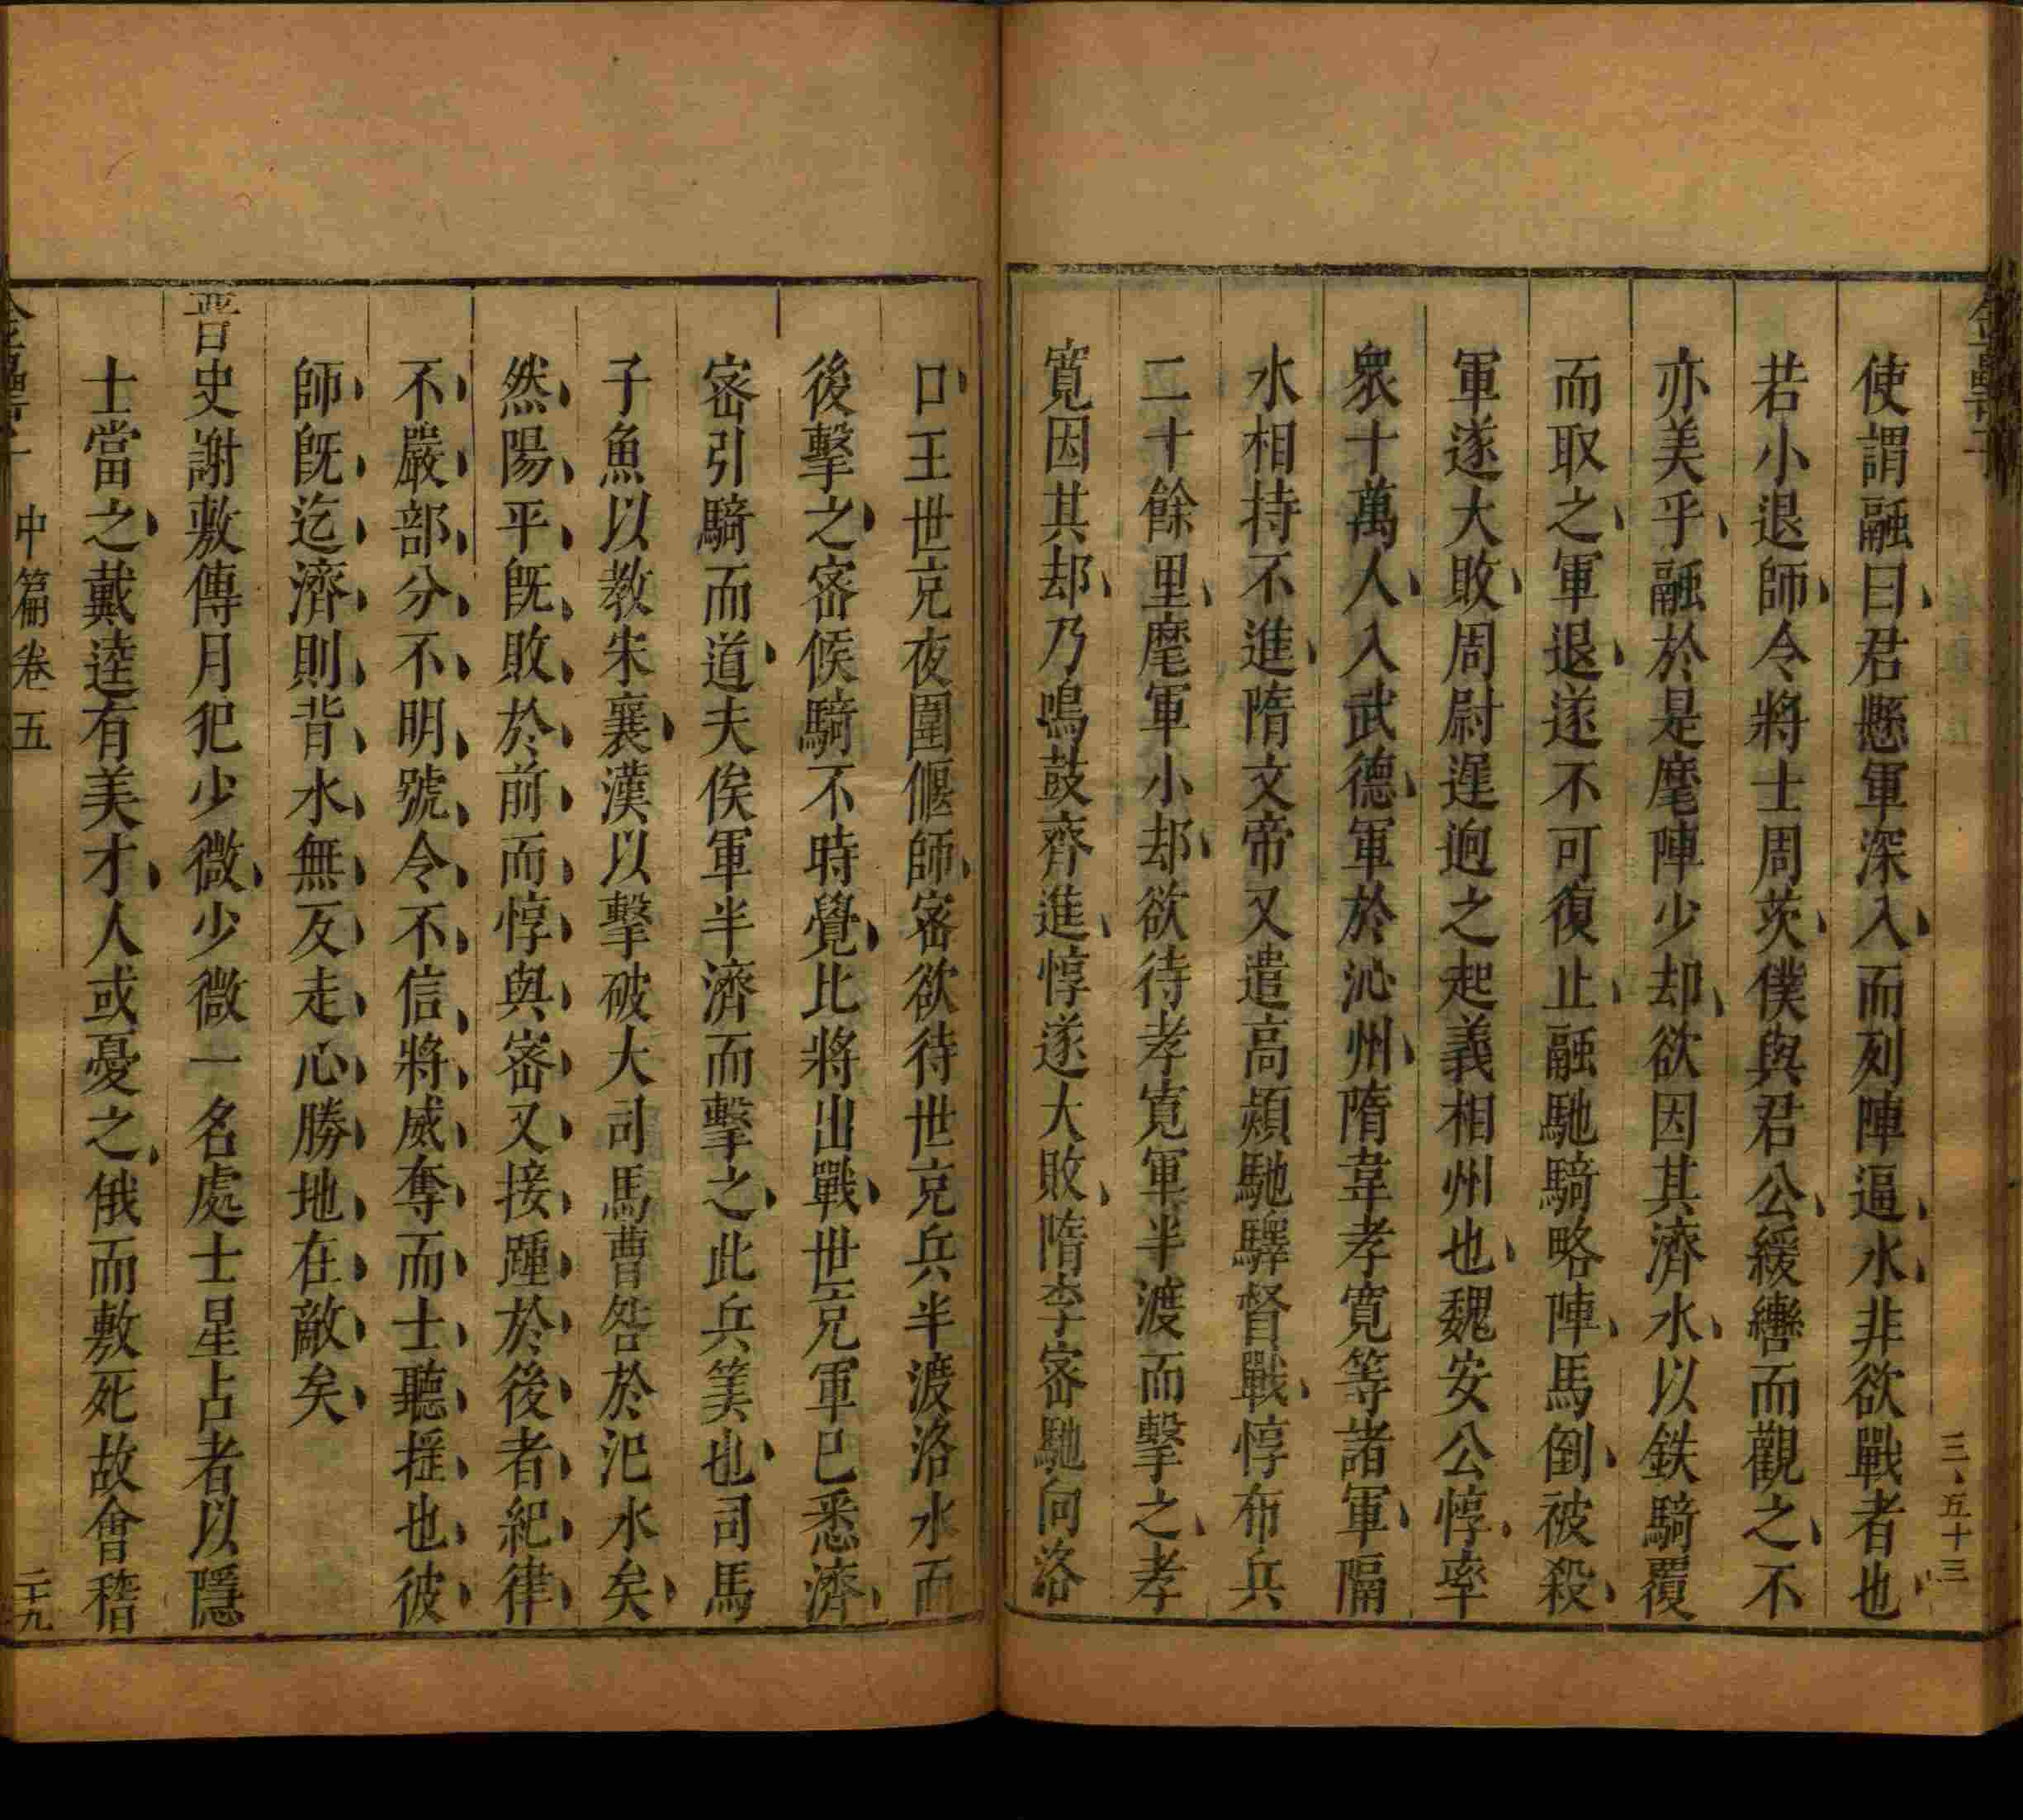 使謂融曰君懸軍深入而列陣逼水非欲戰者也
若小退師令將士周茨僕與君公緩轡而觀之不
亦美乎融於是麾陣少却欲因其濟水以鉄騎覆
而取之軍退遂不可復止融馳騎略陣馬倒被殺
軍遂大敗周尉遲逈之起義相州也魏安公惇率
衆十萬人入武德軍於沁州隋韋孝寬等諸軍隔
水相持不進隋文帝又遣高熲馳驛督戰惇布兵
二十餘里麾軍小却欲待孝寬軍半渡而擊之孝
寬因其却乃鳴鼓齊進惇遂大敗隋李宻馳向洛
口王世充夜圍偃師宻欲待世充兵半渡洛水而
後擊之宻候騎不時覺比將出戰世充軍已悉濟
宻引騎而道夫俟軍半濟而擊之此兵筭也司馬
子魚以教宋襄漢以擊破大司馬曹咎於汜水矣
然陽平旣敗於前而惇與宻又接踵於後者紀律
不嚴部分不明號令不信將威奪而士聽揺也彼
師旣迄濟則背水無反走心勝地在敵矣
晋史謝敷傳月犯少微少微一名處士星占者以隱
士當之戴逵有美才人或憂之俄而敷死故會稽
中篇卷五
二十九
三五十三